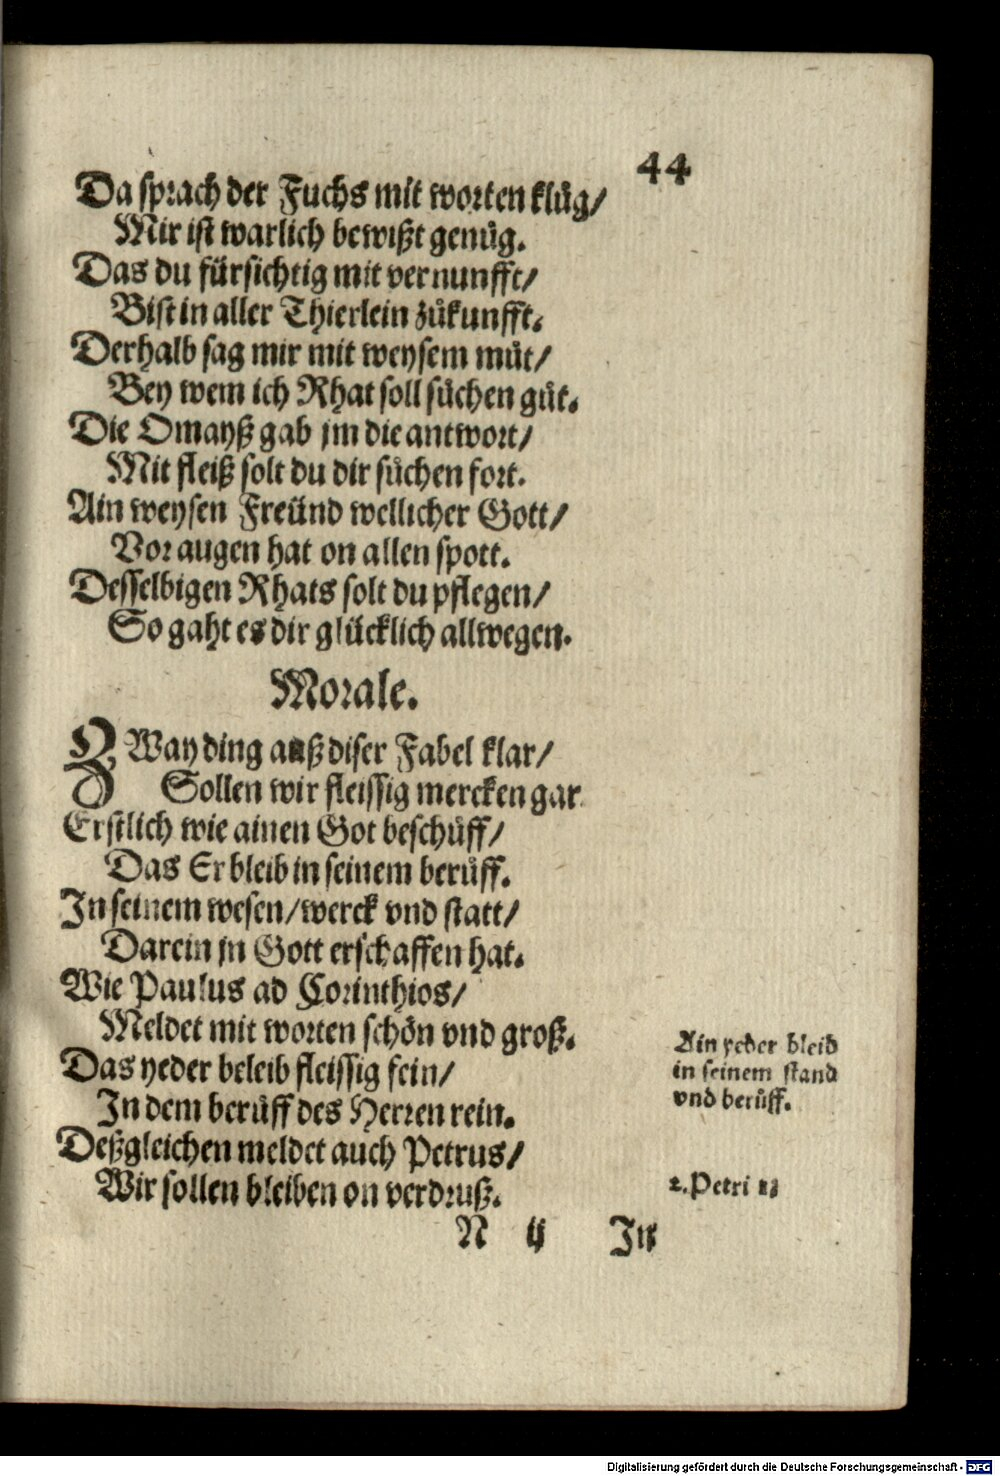 44
Da sprach der Fuchs mit worten klůg/
Mir ist warlich bewißt genůg.
Das du fürsichtig mit vernunfft/
Bist in aller Thierlein zůkunfft.
Derhalb sag mir mit weysem můt/
Bey wem ich Rhat soll sůchen gůt.
Die Omayß gab jm die antwort/
Mit fleiß solt du dir sůchen fort.
Ain weysen Freünd wellicher Gott/
Vor augen hat on allen spott.
Desselbigen Rhats solt du pflegen/
So gaht es dir glücklich allwegen.
Morale.
ZWay ding auß diser Fabel klar/
Sollen wir fleissig mercken gar
Erstlich wie ainen Got beschůff/
Das Er bleib in seinem berůff.
In seinem wesen/werck vnd statt/
Darein jn Gott erschaffen hat.
Wie Paulus ad Corinthios/
Meldet mit worten schön vnd groß.
Das yeder beleib fleissig fein/
In dem berůff des Herren rein.
Deßgleichen meldet auch Petrus/
Wir sollen bleiben on verdruß.
Ain yeder bleib
in seinem stand
vnd berůff.
2.Petri 1.
N ij In
Digitalisierung gefördert durch die Deutsche Forschungsgemeinschaft - DFG